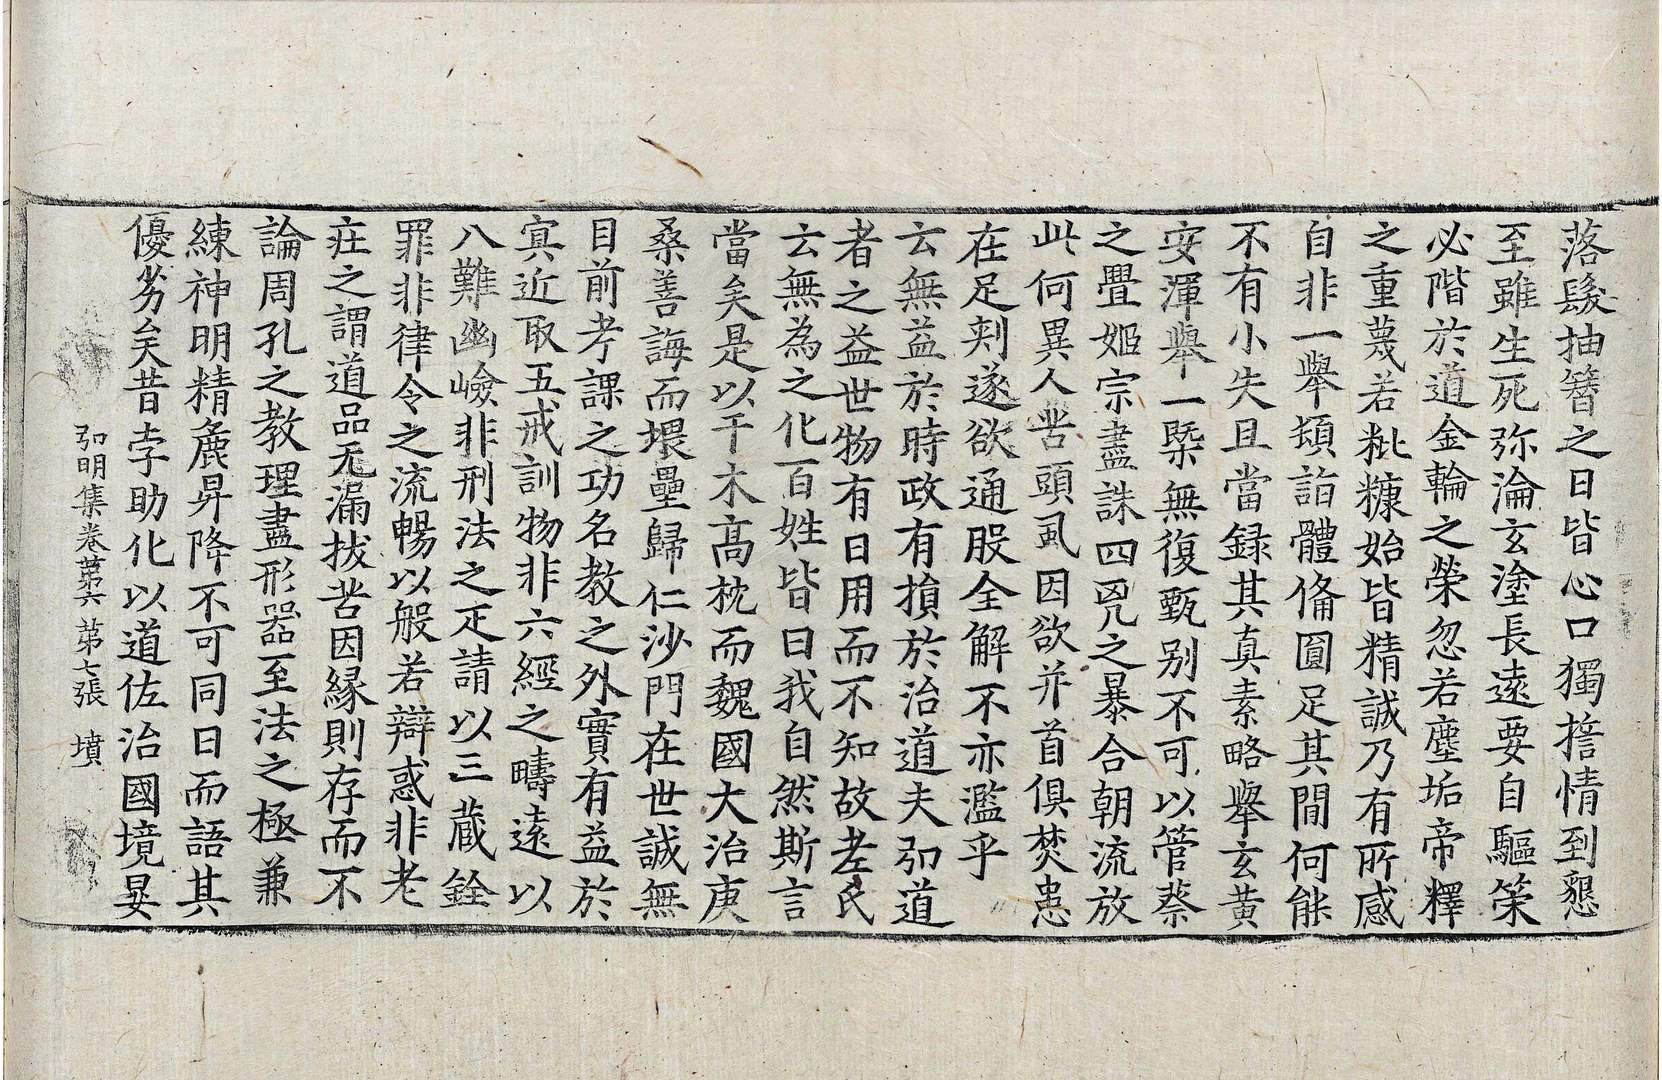 落䯻抽簪之日皆心口獨擔情到懇
至雖生死弥淪玄塗長遠要自驅策
必階於道金輪之榮忽若塵垢帝釋
之重蔑若粃糠始皆精誠乃有所感
自非一舉頓詣體俻圓足其間何能
不有小失且當録其真素略舉玄黃
安渾舉一槩無復甄别不可以管蔡
之亹姬宗盡誅四㐫之暴合朝流放
此何異人苦頭虱因欲并首俱焚患
在足刾遂欲通股全解不亦濫乎
云無益於時政有損於治道夫弘道
者之益世物有日用而不知故老氏
云無為之化百姓皆曰我自然斯言
當矣是以干木髙枕而魏國大治庚
桑善誨而堁壘歸仁沙門在世誠無
目前考課之功名教之外實有益於
㝠近取五戒訓物非六經之疇遠以
八難幽嶮非刑法之疋請以三藏銓
罪非律令之流暢以般若辯惑非老
莊之謂道品无漏拔苦因縁則存而不
論周孔之教理盡形器至法之極兼
練神明精麁昇降不可同日而語其
優劣矣昔孛助化以道佐治國境晏
弘明集卷苐六 苐七張 墳